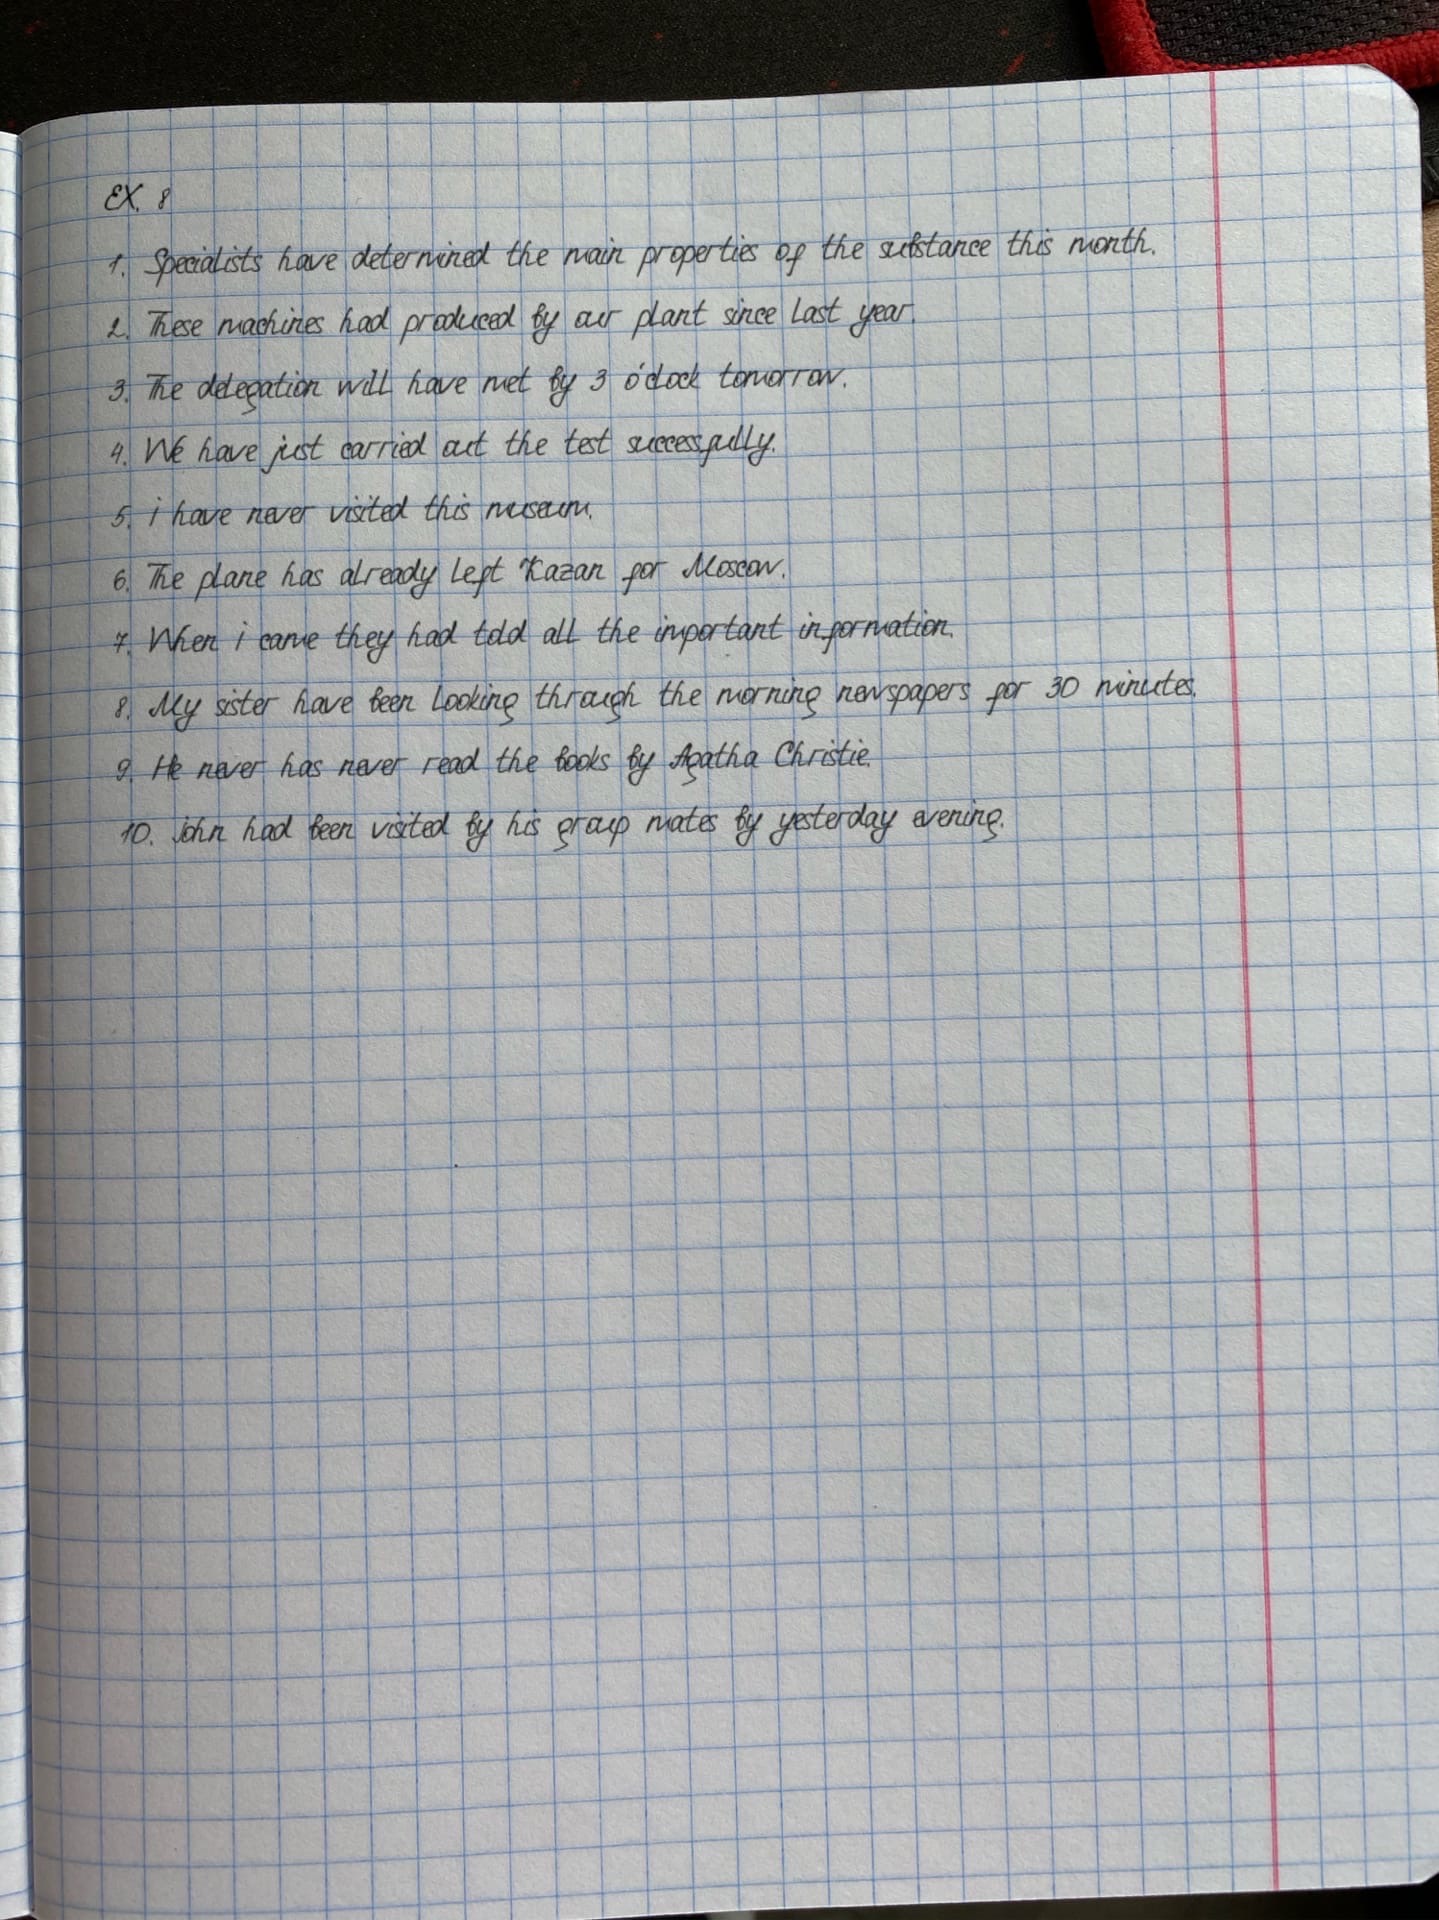 EX. 8
1. Specialists have determined the main properties of the substance this month.
2. These machines had produced by our plant since last year.
3. The delegation will have met by 3 o'clock tomorrow.
4. We have just carried out the test successfully.
5. i have never visited this museum.
6. The plane has already left Kazan for Moscow.
7. When i came they had told all the important information.
8. My sister have been looking through the morning newspapers for 30 minutes.
9. He never has never read the books by Agatha Christie.
10. John had been visited by his group mates by yesterday evening.